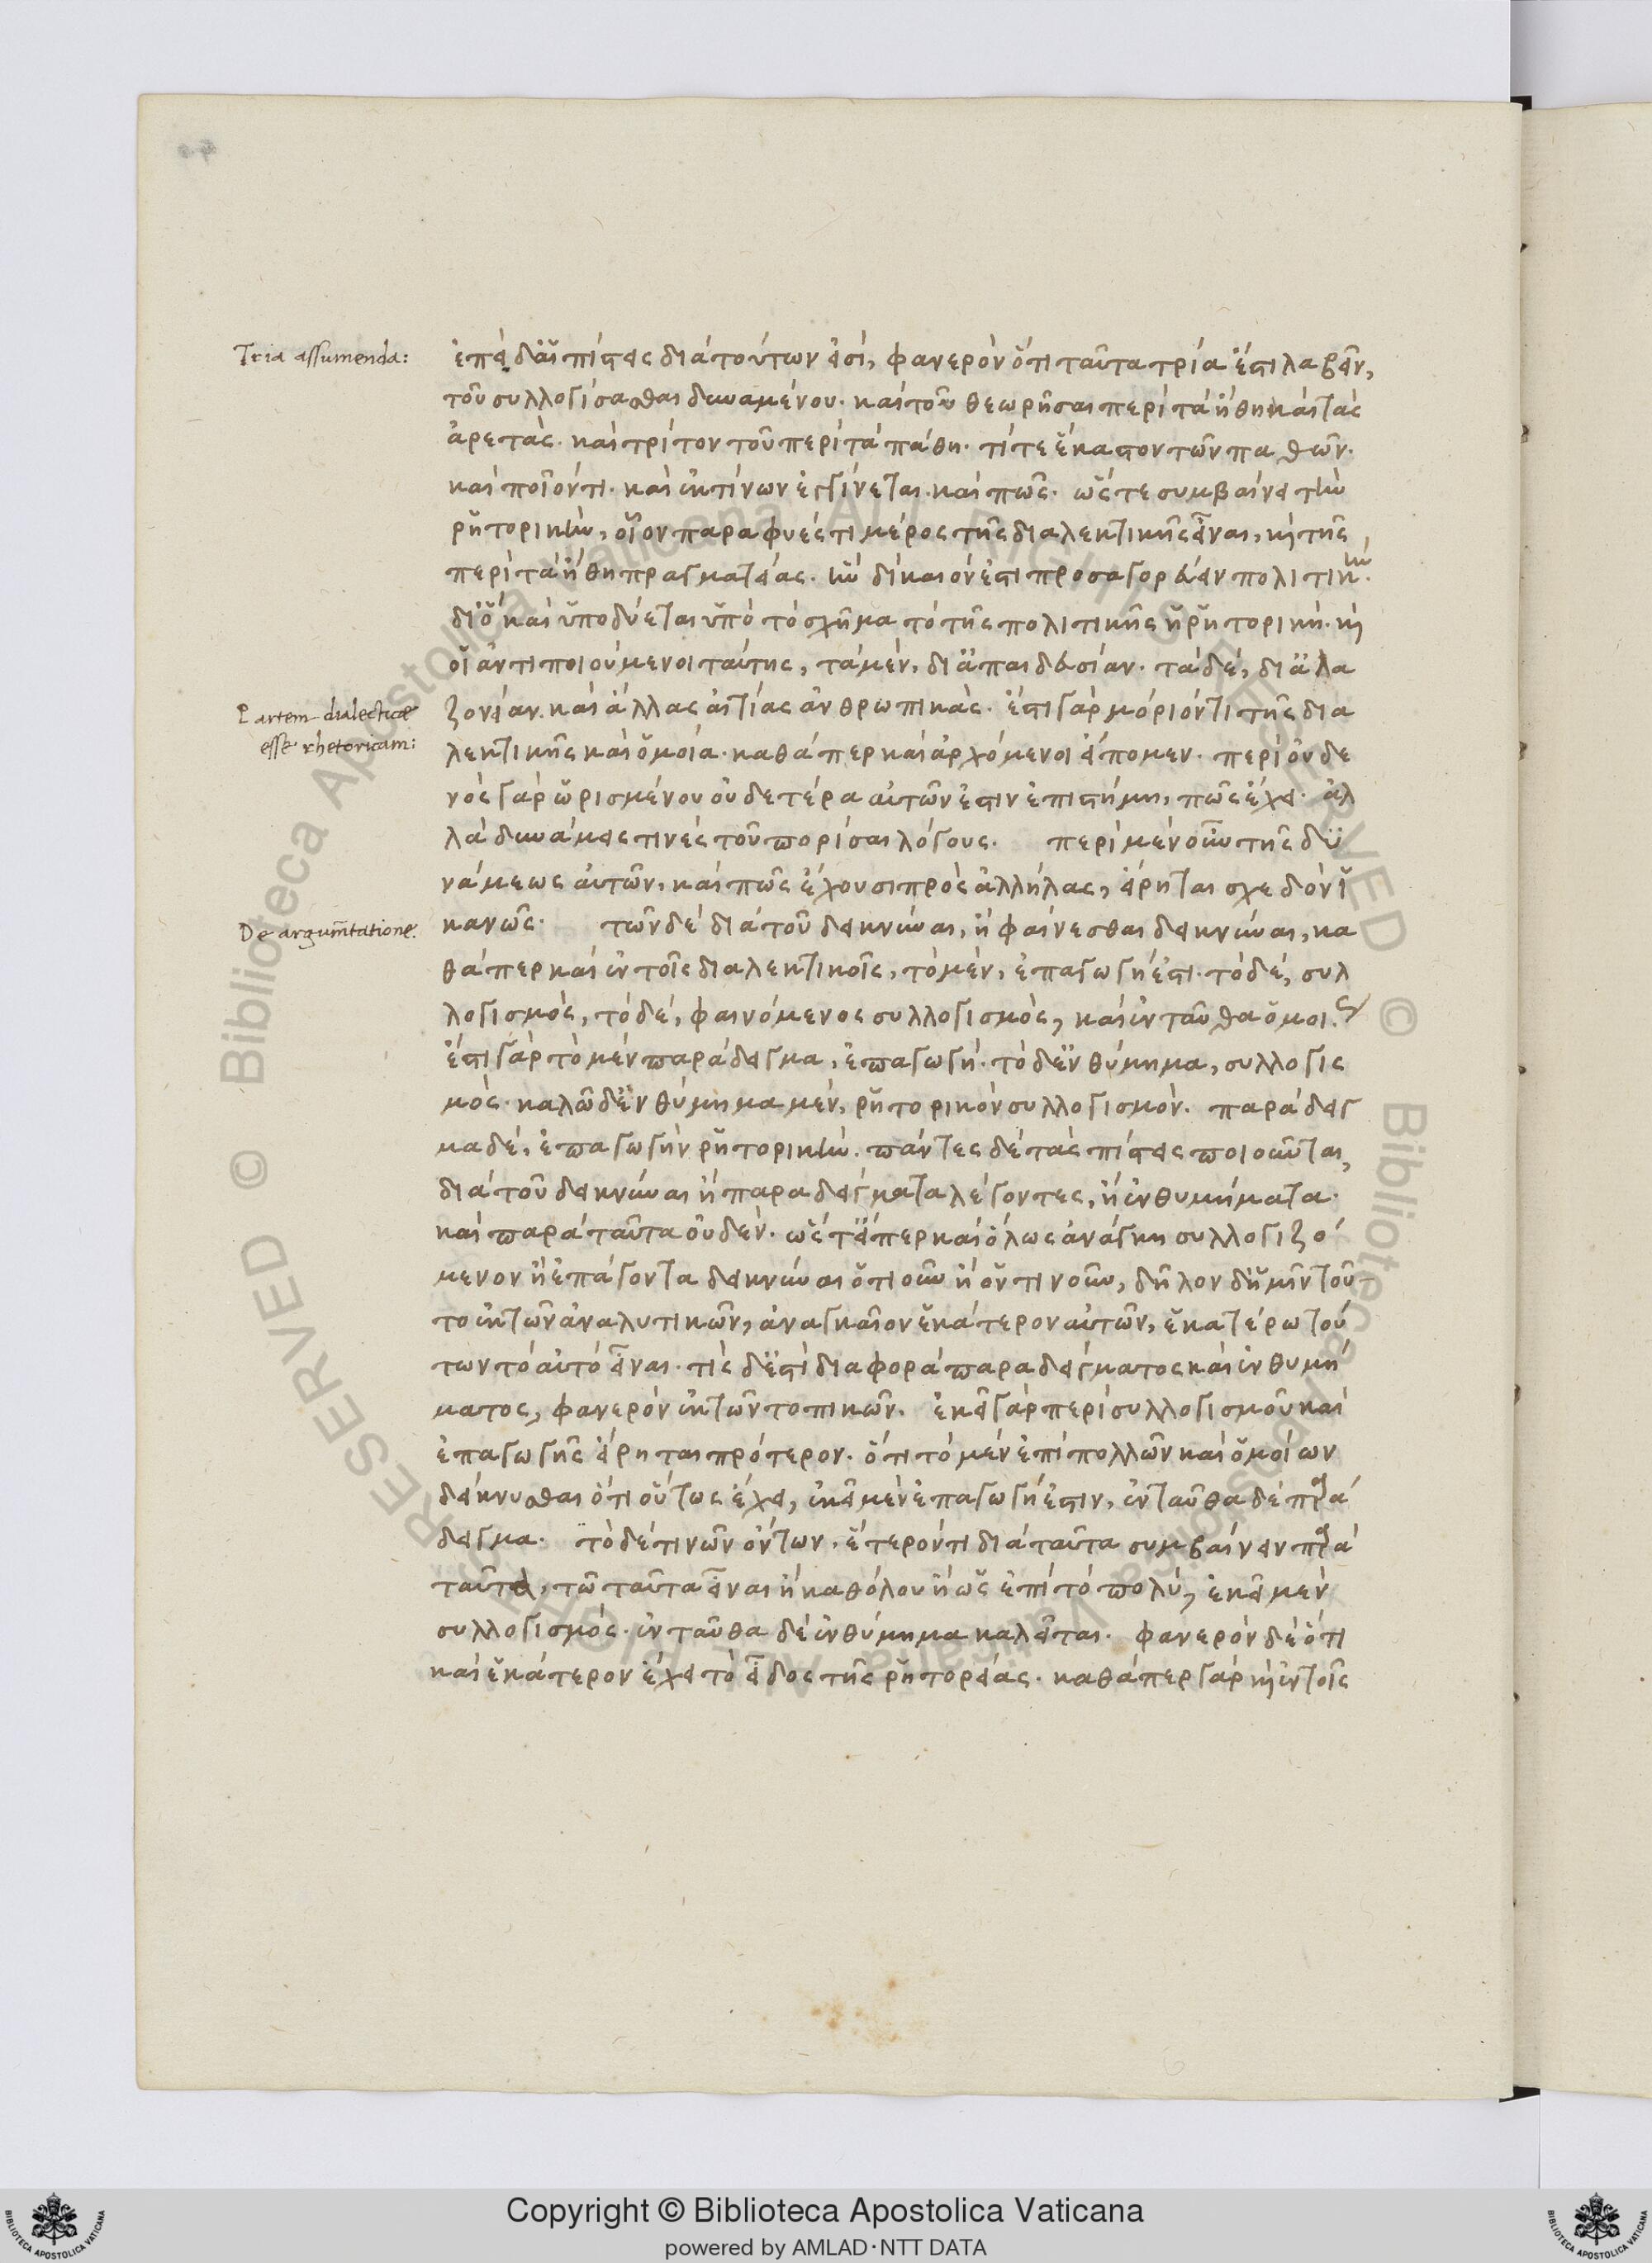 Tria assumenda:
ἐπεὶ δ' αἱ πίστεις διὰ τούτων εἰσὶ, φανερὸν ὅτι ταῦτα τρία ἐστὶ λαβεῖν,
τοῦ συλλογίσασθαι δυναμένου. καὶ τοῦ θεωρῆσαι περὶ τὰ ἤθη καὶ τὰς
ἀρετάς. καὶ τρίτον τοῦ περὶ τὰ πάθη. τί τε ἕκαστον τῶν παθῶν.
καὶ ποῖόν τι. καὶ ἐκ τίνων ἐγγίνεται. καὶ πῶς. ὥστε συμβαίνει τὴν
ῥητορικὴν, οἷον παραφυές τι μέρος τῆς διαλεκτικῆς εἶναι, καὶ τῆς
περὶ τὰ ἤθη πραγματείας. ἣν δίκαιόν ἐστι προσαγορεύειν πολιτικήν.
διὸ καὶ ὑποδύεται ὑπὸ τὸ σχῆμα τὸ τῆς πολιτικῆς ἡ ῥητορική. καὶ
οἱ ἀντιποιούμενοι ταύτης, τὰ μὲν, δι' ἀπαιδευσίαν. τὰ δὲ, δι' ἀλα
Partem dialecticae
esse rhetoricam:
ζονείαν. καὶ ἄλλας αἰτίας ἀνθρωπικάς. ἔστι γὰρ μόριόν τι τῆς δια
λεκτικῆς καὶ ὁμοία. καθάπερ καὶ ἀρχόμενοι εἴπομεν. περὶ οὐδε
νὸς γὰρ ὡρισμένου οὐδετέρα αὐτῶν ἐστιν ἐπιστήμη, πῶς ἔχει. ἀλ
λὰ δυνάμεις τινὲς τοῦ πορίσαι λόγους. περὶ μὲν οὖν τῆς δυ
νάμεως αὐτῶν, καὶ πῶς ἔχουσι πρὸς ἀλλήλας, εἴρηται σχεδὸν ἱ
De argumtatione.
κανῶς. τῶν δὲ διὰ τοῦ δεικνύναι, ἢ φαίνεσθαι δεικνύναι, κα
θάπερ καὶ ἐν τοῖς διαλεκτικοῖς, τὸ μὲν, ἐπαγωγή ἐστι. τὸ δὲ, συλ
λογισμὸς, τὸ δὲ, φαινόμενος συλλογισμὸς, καὶ ἐνταῦθα ὁμοίως
ἔστι γὰρ τὸ μὲν παράδειγμα, ἐπαγωγή. τὸ δ' ἐνθύμημα, συλλογισ
μός. καλῶ δ' ἐνθύμημα μὲν, ῥητορικὸν συλλογισμόν. παράδειγ
μα δὲ, ἐπαγωγὴν ῥητορικήν. πάντες δὲ τὰς πίστεις ποιοῦνται,
διὰ τοῦ δεικνύναι ἢ παραδείγματα λέγοντες, ἢ ἐνθυμήματα.
καὶ παρὰ ταῦτα οὐδέν. ὥστ' εἴπερ καὶ ὅλως ἀνάγκη συλλογιζό
μενον ἢ ἐπάγοντα δεικνύναι ὁτιοῦν ἢ ὁντινοῦν, δῆλον δ' ἡμῖν τοῦ-
το ἐκ τῶν ἀναλυτικῶν, ἀναγκαῖον ἑκάτερον αὐτῶν, ἑκατέρω τού
των τὸ αὐτὸ εἶναι. τίς δ' ἐστὶ διαφορὰ παραδείγματος καὶ ἐνθυμή
ματος, φανερὸν ἐκ τῶν τοπικῶν. ἐκεῖ γὰρ περὶ συλλογισμοῦ καὶ
ἐπαγωγῆς εἴρηται πρότερον. ὅτι τὸ μὲν ἐπὶ πολλῶν καὶ ὁμοίων
δείκνυσθαι ὅτι οὕτως ἔχει, ἐκεῖ μὲν ἐπαγωγή ἐστιν, ἐνταῦθα δὲ παρά
δειγμα. τὸ δὲ τινῶν ὄντων, ἕτερόν τι διὰ ταῦτα συμβαίνειν παρὰ
ταῦτα, τῶ ταῦτα εἶναι ἢ καθόλου ἢ ὡς ἐπὶ τὸ πολὺ, ἐκεῖ μὲν
συλλογισμός. ἐνταῦθα δὲ ἐνθύμημα καλεῖται. φανερὸν δὲ ὅτι
καὶ ἑκάτερον ἔχει τὸ εἶδος τῆς ῥητορείας. καθάπερ γὰρ καὶ ἐν τοῖς
Copyright © Biblioteca Apostolica Vaticana
powered by AMLAD·NTT DATA